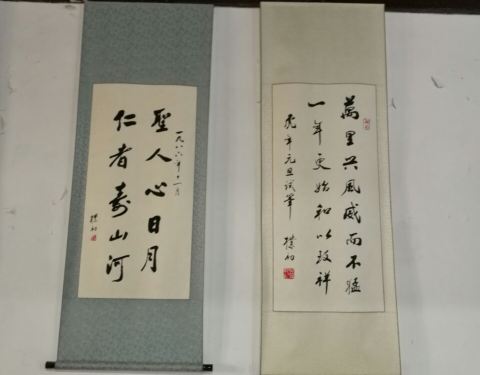 萬里共風威而不猛
一年更始和以致祥
虎年元旦試筆
樸初
一九八六年十一月
聖人心日月
仁者壽山河
樸初